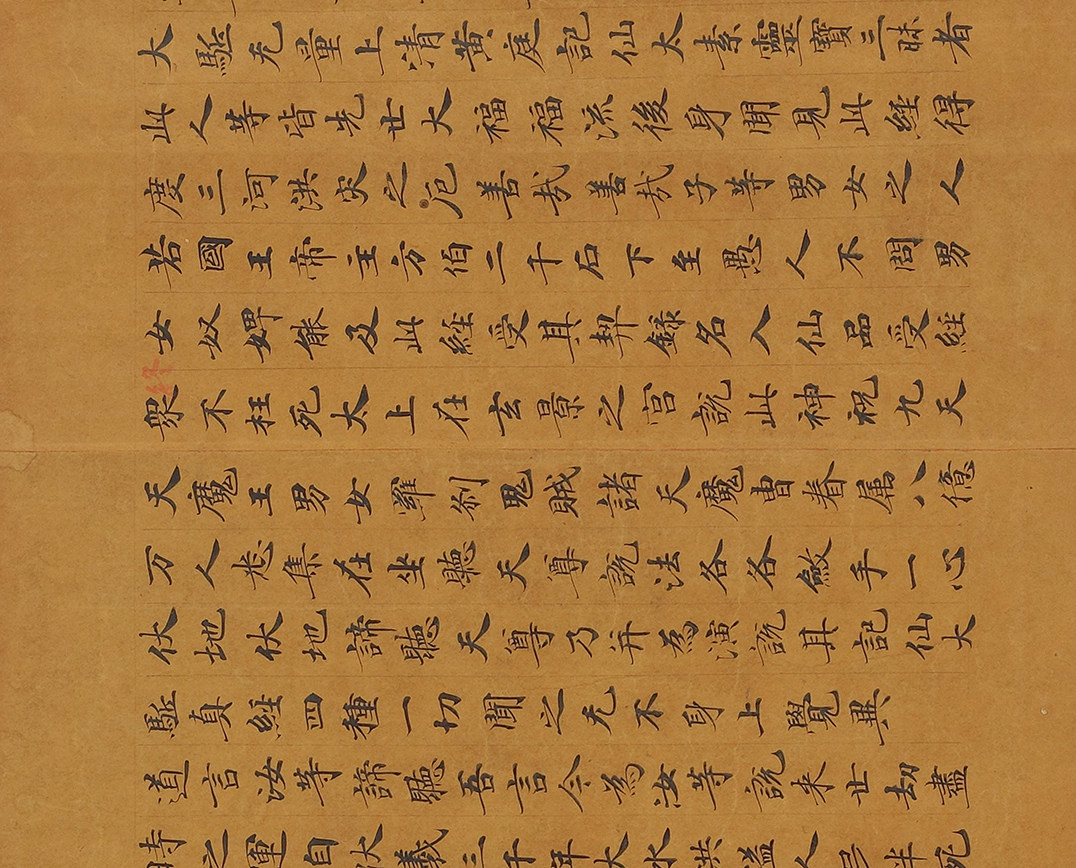 大駈无量上清黃庭記仙太素靈寶三昧者
此人等皆先世大福福流後身聞見此經得
度三河洪災之厄善哉善哉子等男女之人
若國王帝主方伯二千石下至愚人不問男
女奴婢能及此經受其契錄名入仙品受經
衆不枉死太上在玄景之宮説此神祝九天
天魔王男女羅刹鬼賊諸天魔曹眷属八億
万人悉集在坐聽天尊説法各各斂手一心
伏地伏地諦聽天尊乃并為演説其記仙大
駈真經四種一切聞之无不身上覺異
道言汝等諦聽吾言今為汝等説来世劫盡
時之運自伏羲三千年大水洪溢人半死